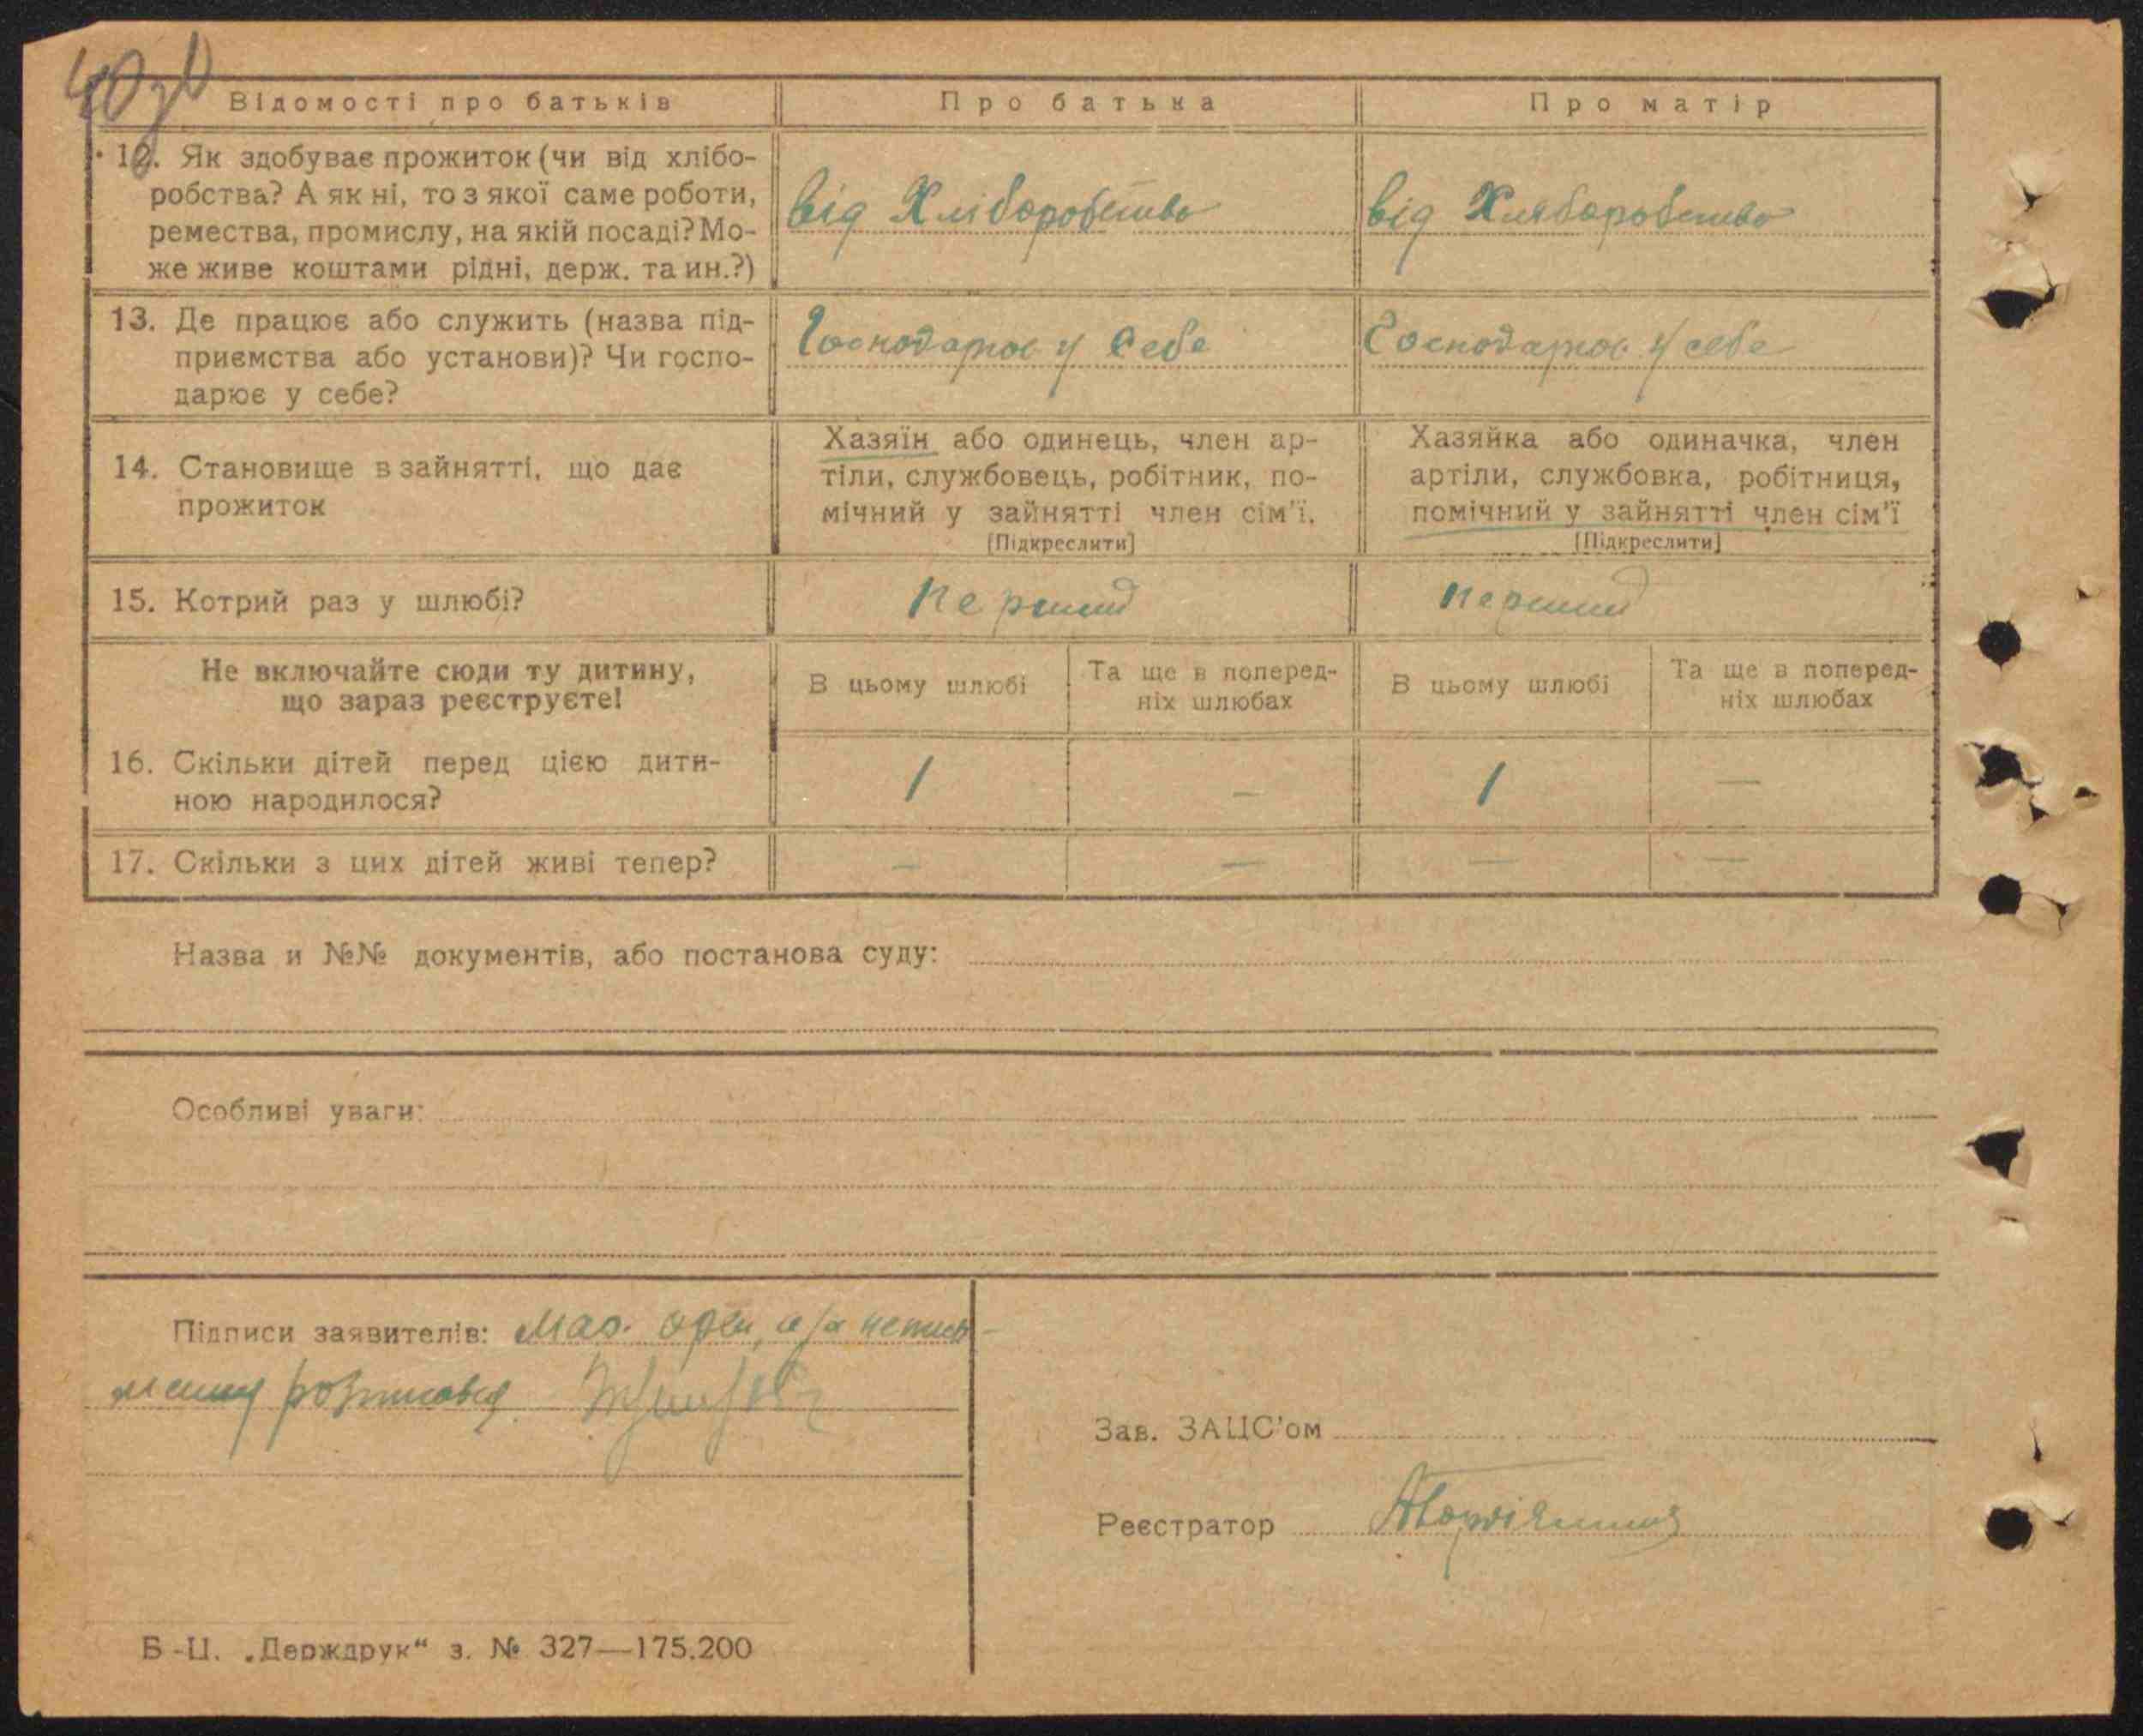 40зв
Відомості про батьків
Про батька
Про матір
12. Як здобуває прожиток (чи від хлібо-
робства? А як ні, то з якої саме роботи,
ремества, промислу, на якій посаді? Мо-
же живе коштами рідні, держ. та ин.?)
від Хліборобства
від Хліборобства
13. Де працює або служить (назва під-
приємства або установи)? Чи госпо-
дарює у себе?
Господарює у себе
Господарює у себе
14. Становище в зайнятті, що дає
прожиток
Хазяїн або одинець, член ар-
тіли, службовець, робітник, по-
мічний у зайнятті член сім'ї.
[Підкреслити]
Хазяйка або одиначка, член
артіли, службовка, робітниця,
помічний у зайнятті член сім'ї
[Підкреслити]
15. Котрий раз у шлюбі?
перший
перший
Не включайте сюди ту дитину,
що зараз реєструєте!
В цьому шлюбі
Та ще в поперед-
ніх шлюбах
В цьому шлюбі
Та ще в поперед-
ніх шлюбах
16. Скільки дітей перед цією дити-
ною народилося?
1
—
1
—
17. Скільки з цих дітей живі тепер?
—
—
—
—
Назва и №№ документів, або постанова суду:
Особливі уваги:
Підписи заявителів:
Зав. ЗАЦС'ом
Реєстратор
Б-Ц. „Держдрук“ з. № 327—175.200